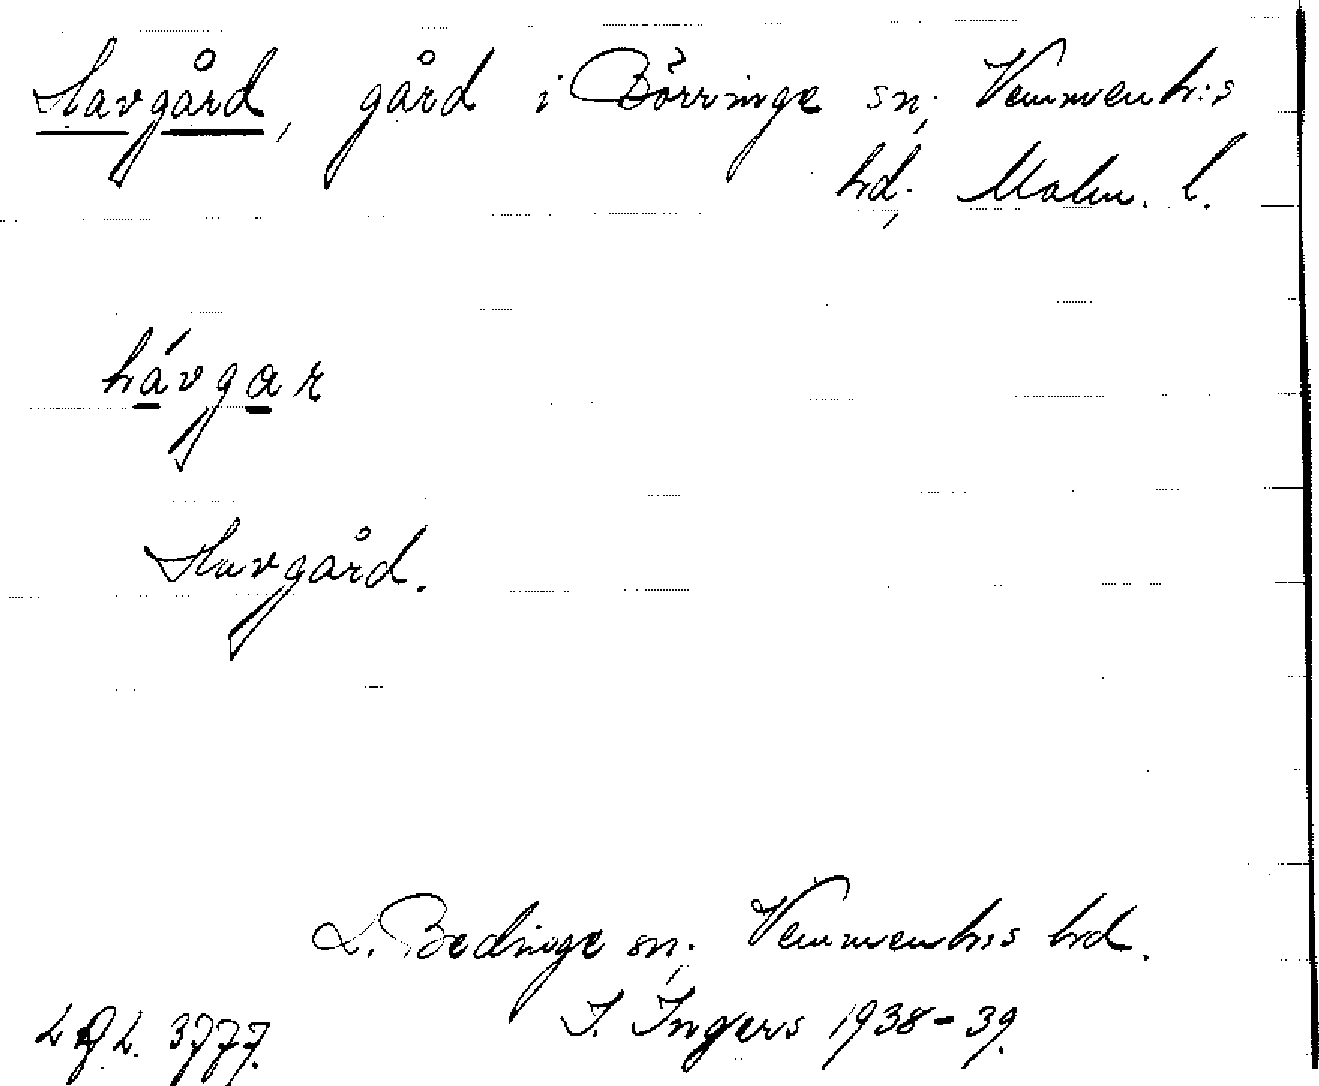 Havgård, gård i Börringe sn, Vemmenhs
hd, Malm. l.
hávgar
Havgård.
L. Bedinge sn, Vemmenhs hd.
I. Ingers 1938-39.
3777.